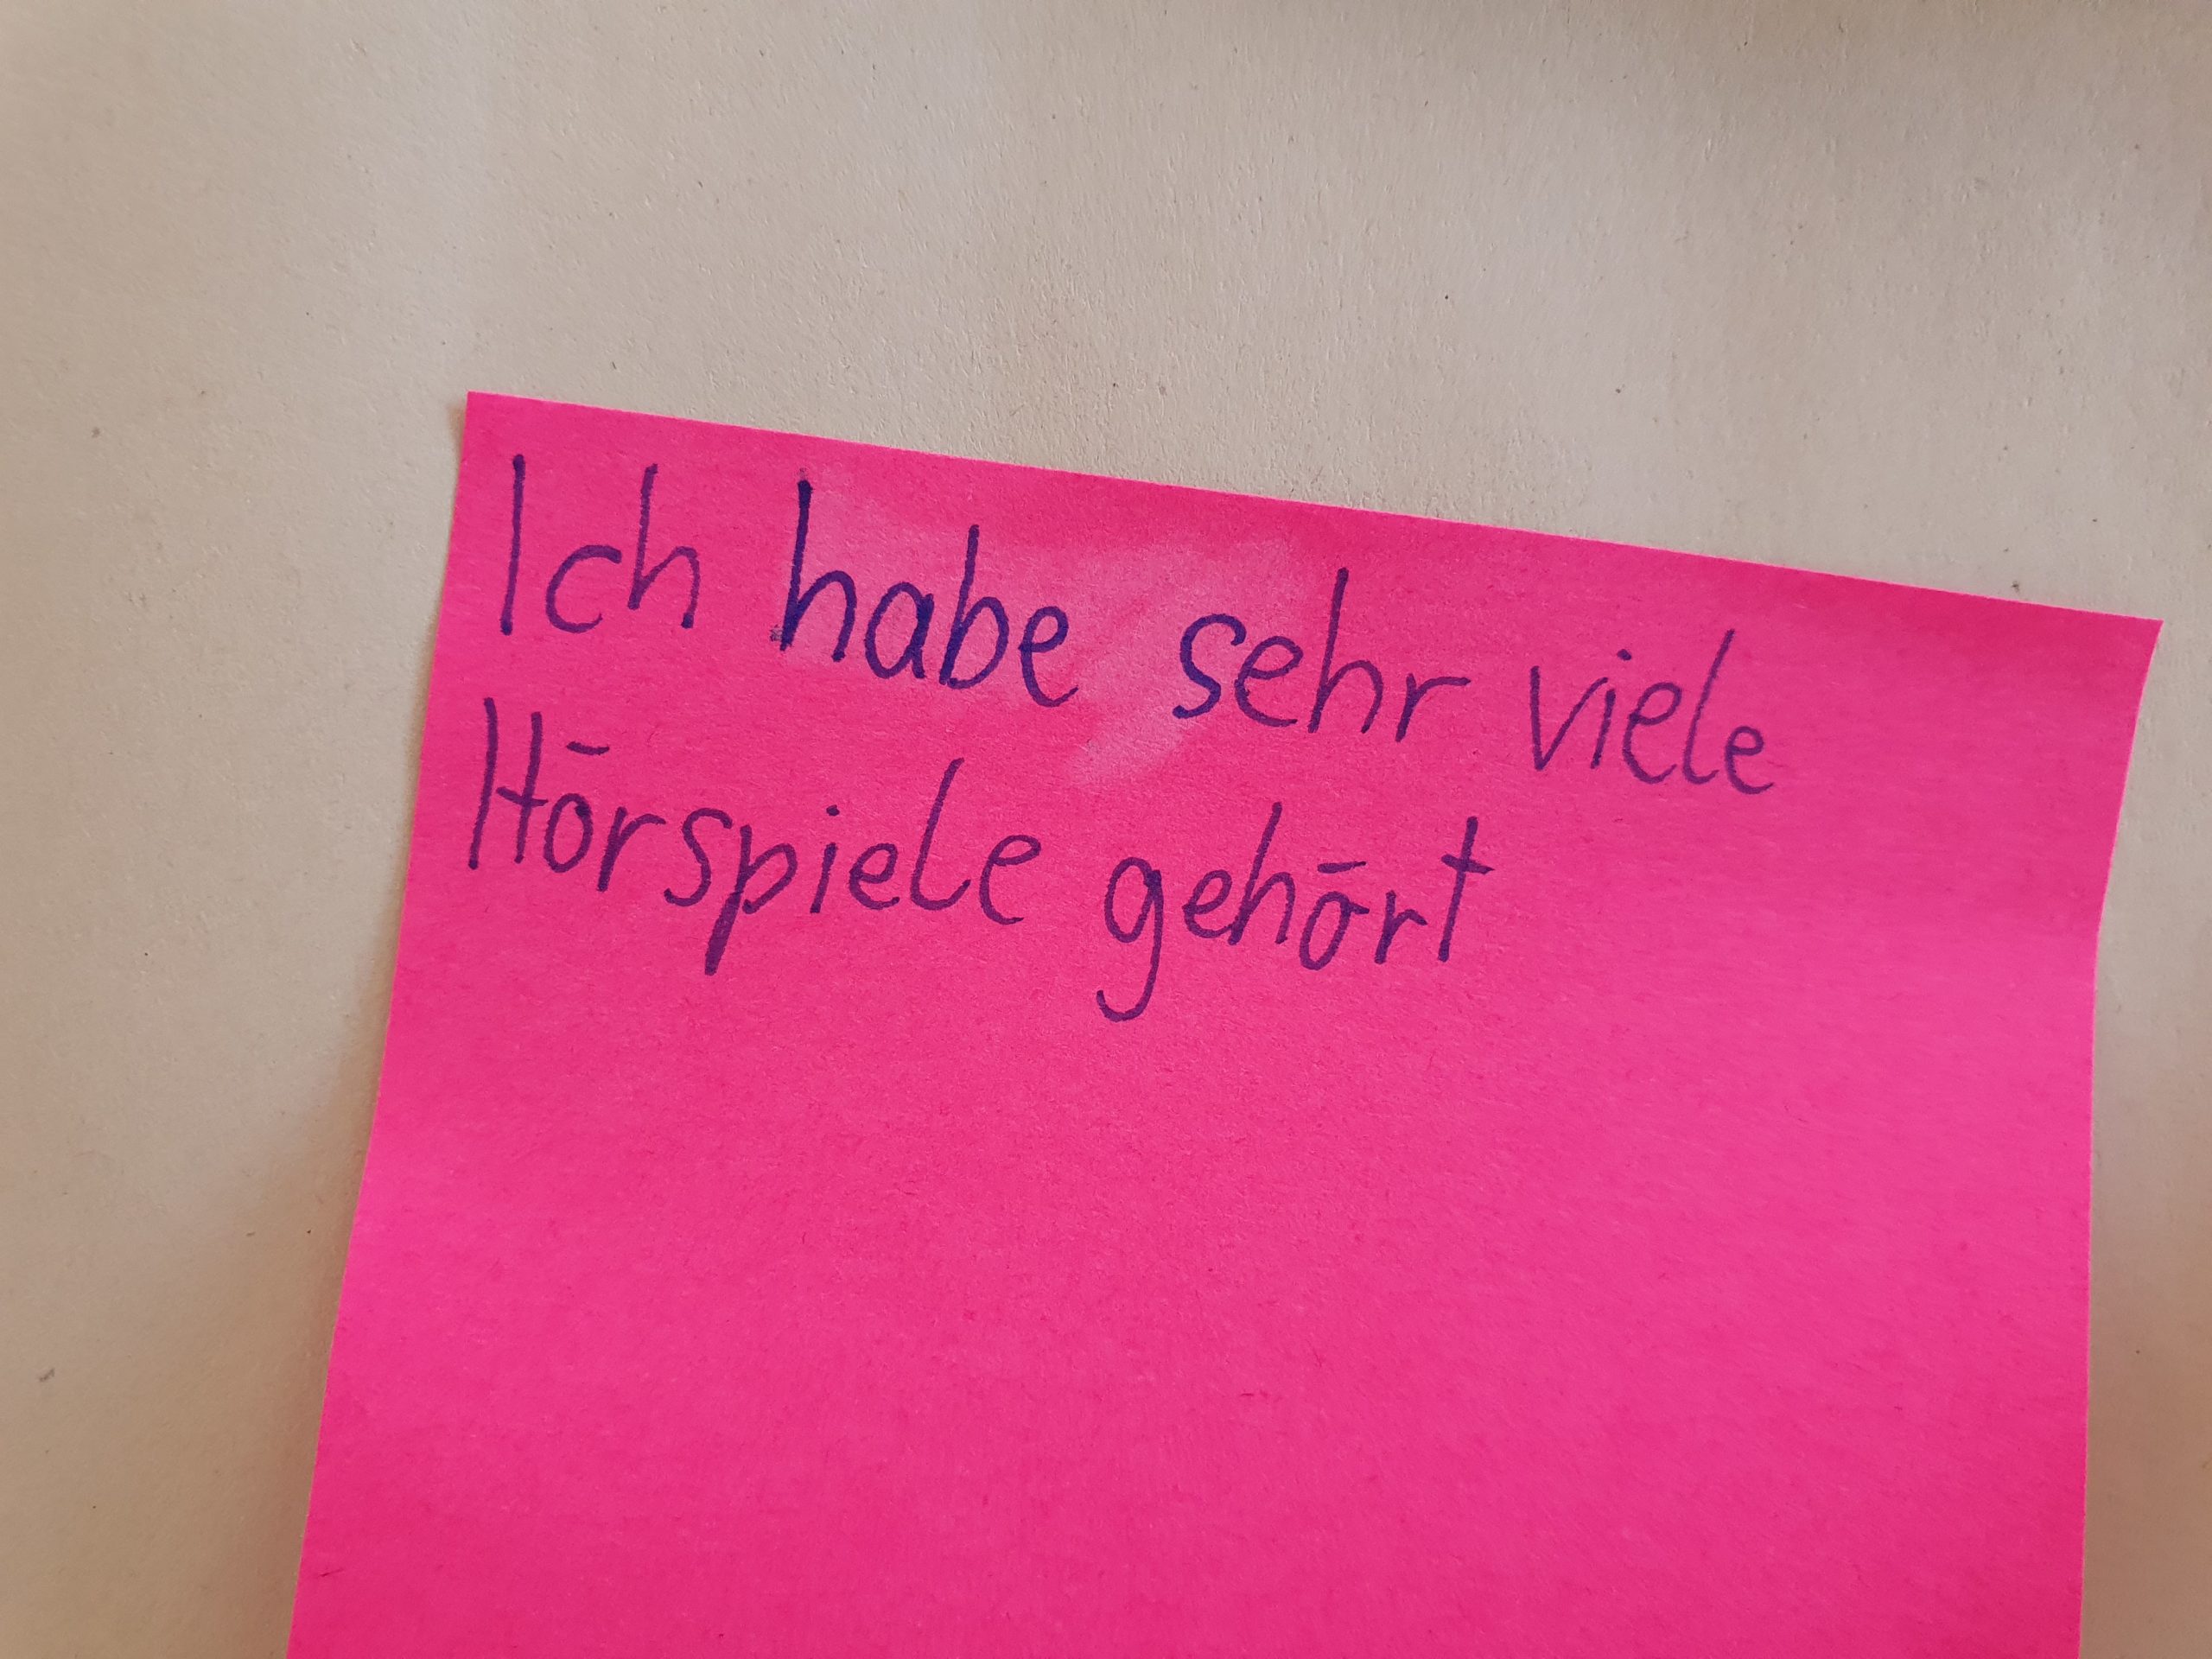 Ich habe sehr viele
Hörspiele gehört